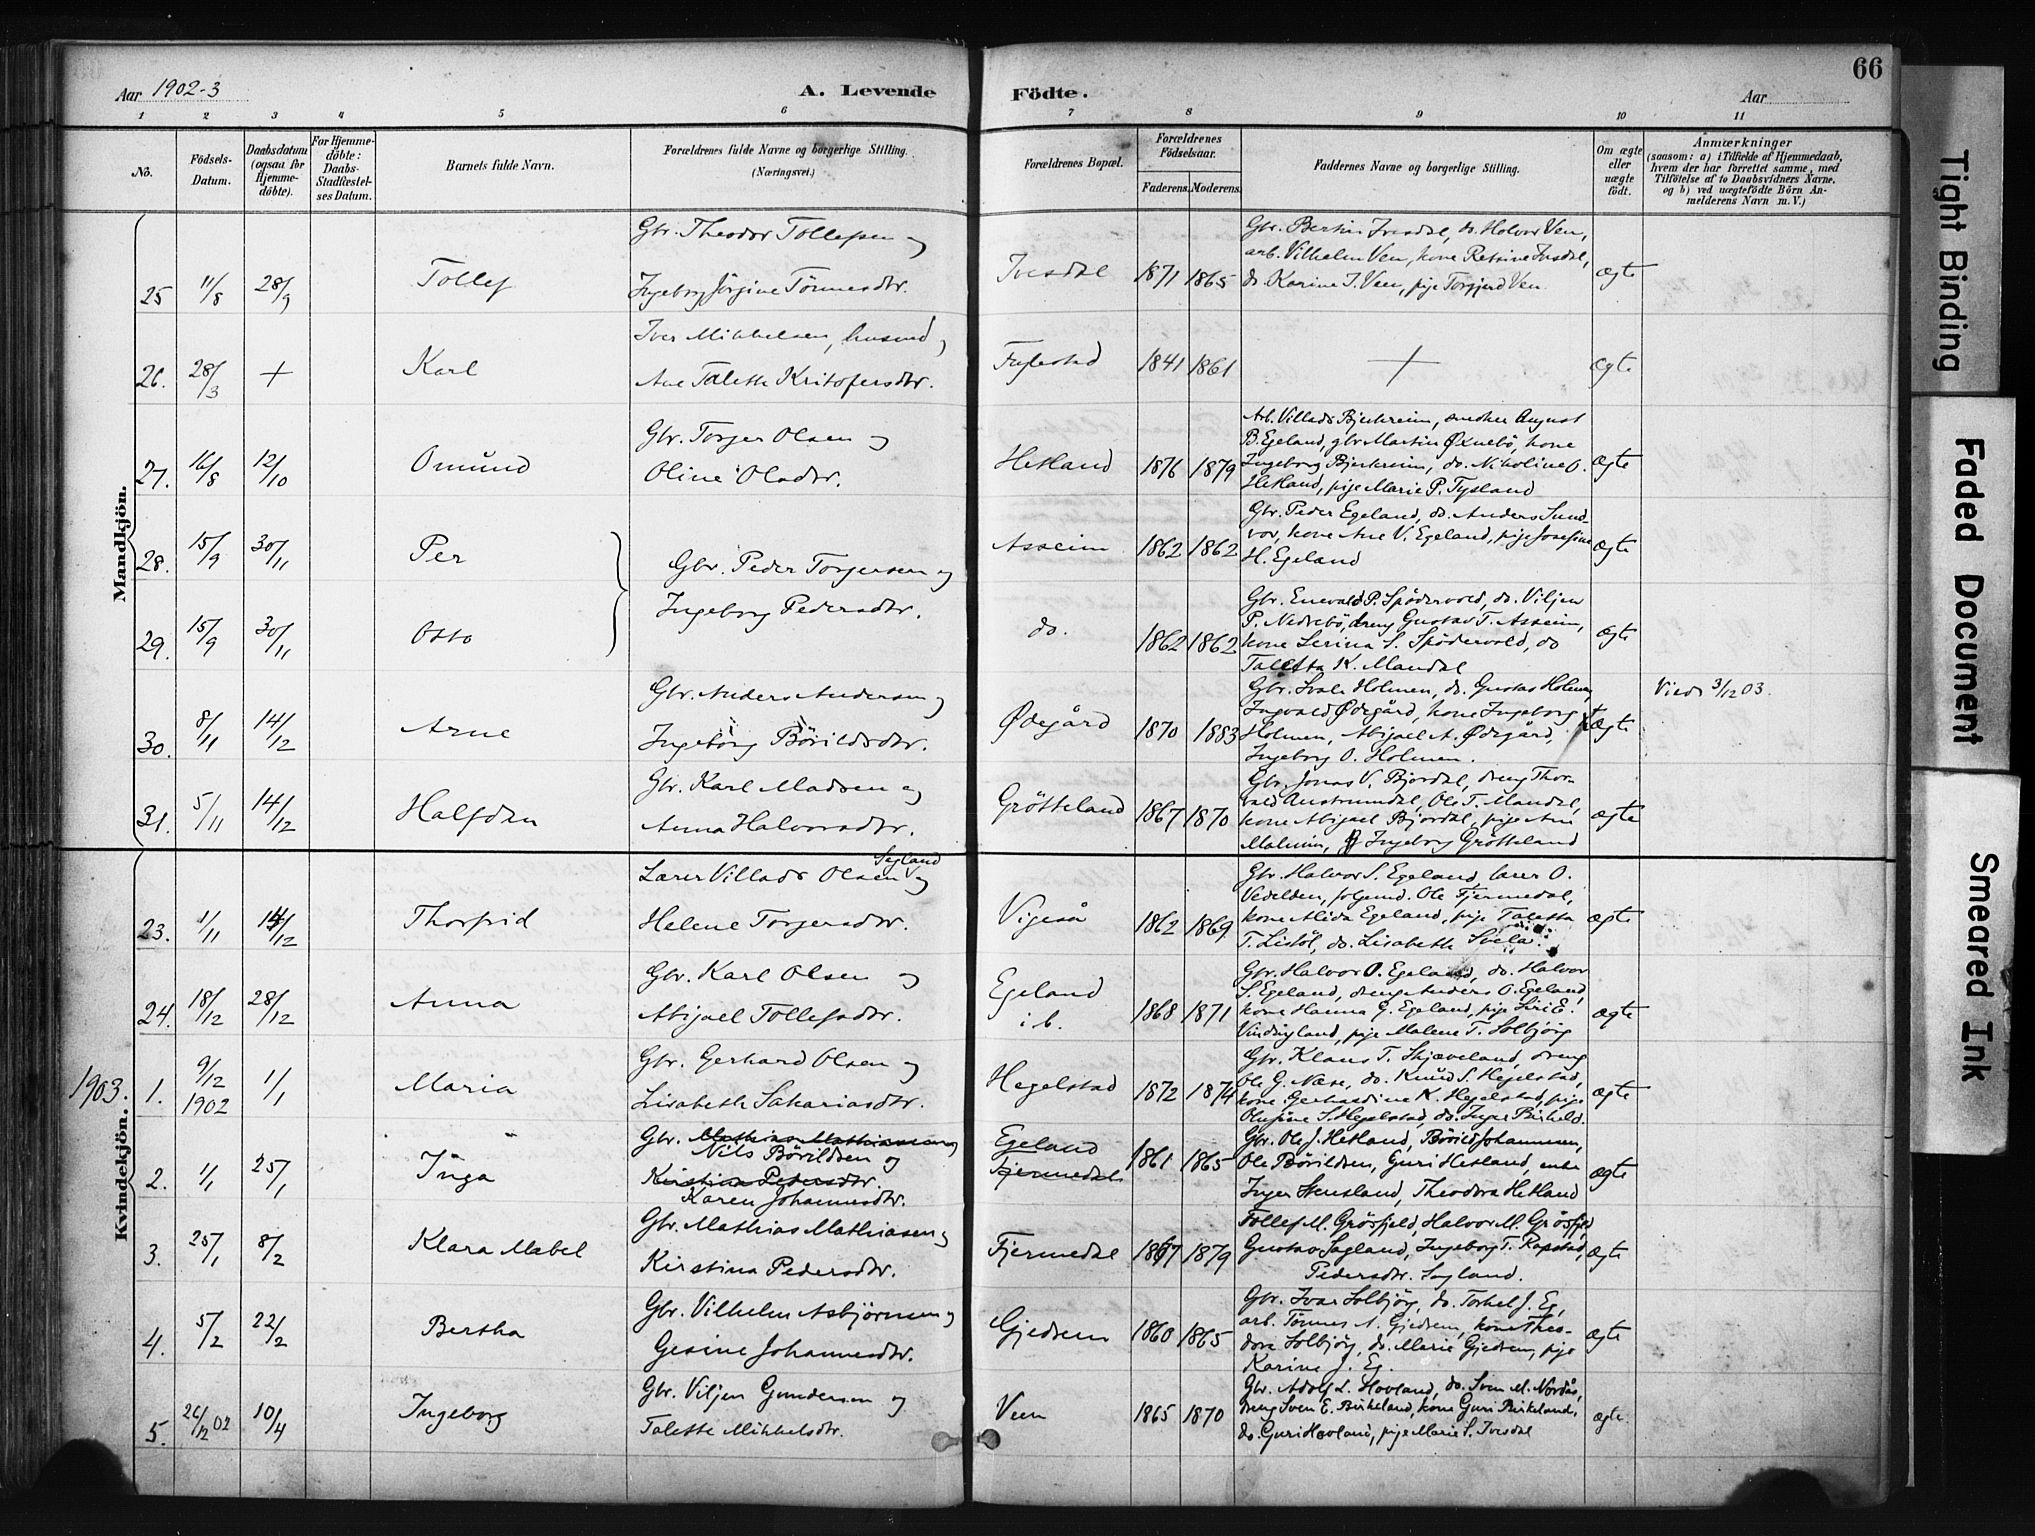 66
Aar 1902-3
A. Levende
Födte.
Aar
1 2 3 4 5 6 7 8 9 10 11
No.
Födsels-Datum.
Daabsdatum (ogsaa for Hjemme-döbte).
For Hjemme-döbte: Daabs-Stadfæstel-ses Datum.
Barnets fulde Navn.
Forældrenes fulde Navne og borgerlige Stilling.
(Næringsvei.)
Forældrenes Bopæl.
Forældrenes Födselsaar.
Faderens. Moderens.
Faddernes Navne og borgerlige Stilling.
Om ægte eller uægte födt.
Anmærkninger
(saasom: a) i Tilfælde af Hjemmedaab,
hvem der har forrettet samme, med
Tilföielse af to Daabsvidners Navne,
og b) ved uægtefödte Börn An-
melderens Navn m. V.)
Mandkjön.
25 11/8 28/9 Tollef
Gbr. Theodor Tollefsen og
Ingeborg Jörgine Tönnesdtr.
Ivesdal 1871 1865
Gbr. Bertin Ivesdal, do. Halvor Veen,
arb. Vilhelm Veen, kone Retsine Ivesdal,
do. Karine T. Veen, pige Torgjerd Veen
ægte
26. 28/3 + Karl
Iver Mikkelsen, husmd,
Ane Talette Kristofersdtr.
Fuglestad 1841 1861 + ægte
27. 16/8 12/10 Omund
Gbr. Torger Olsen og
Oline Olsdtr.
Hetland 1876 1879
Arb. Villads Bjerkreim, snedker August
B. Egeland, gbr Martin Øxnebö, kone
Ingeborg Bjerkreim, do. Nikoline O.
Hetland, pige Marie P. Tysland
ægte
28. 15/9 30/11 Per
Gbr. Peder Torgersen og
Ingeborg Pedersdtr.
Asseim 1862 1862
Gbr. Peder Egeland, do. Anders Sund-
vor, kone Ane V. Egeland, pige Josefine
H. Egeland
ægte
29. 15/9 30/11 Otto
do. 1862 1862
Gbr. Enevald P. Spödervold, do. Viljen
P. Nedrebö, dreng Gustav T. Asseim,
kone Serina S. Spödervold, do
Taletta K. Mandal
ægte
30. 8/11 14/12 Arne
Gbr. Anders Andersen og
Ingeborg Börildsdtr.
Ødegård 1870 1883
Gbr. Svale Holmen, do. Gustav Holmen,
Ingvald Ødegård, kone Ingeborg
Holmen, Abigael A. Ødegård,
Ingeborg O. Holmen.
ægte
Vieds 3/12 03.
31. 5/11 14/12 Halfdan
Gbr. Karl Madsen og
Anna Halvorsdtr.
Grötteland 1867 1870
Gbr. Jonas V. Bjordal, dreng Thor-
vald Austrumdal, Ole T. Mandal,
kone Abigael Bjordal, pige Ane
Malmim, Ingeborg Grötteland
ægte
Kvindekjön.
23. 1/11 14/12 Thorfrid
Sagland
Lærer Villads Olsen og
Helene Torgersdtr.
Vigeså 1862 1869
Gbr. Halvor S. Egeland, lærer O.
Vedelden, folgemd. Ole Fjermedal,
kone Alida Egeland, pige Taletta
T. Lislöl, do. Lisabeth Svela.
ægte
24. 18/12 28/12 Anna
Gbr. Karl Olsen og
Abigael Tollefsdtr.
Egeland
i b. 1868 1871
Gbr. Halvor O. Egeland, do. Halvor
S. Egeland, dreng Anders O. Egeland,
kone Hanna G. Egeland, pige Siri E.
Vindsigland, pige Malene T. Solbjörg
ægte
1903. 1. 9/12 1902 1/1 Maria
Gbr. Gerhard Olsen og
Lisabeth Sakariasdtr.
Hegelstad 1872 1874
Gbr. Klaus T. Skjæveland, dreng
Ole G. Næse, do. Knud S. Hegelstad,
kone Gerhardine K. Hegelstad, pige
Olufine S. Hegelstad, do. Inger Birkeld.
ægte
2. 1/1 25/1 Inga
Gbr. Mathias Mathiassen og
Nils Börildsen og
Kirstina Pedersdtr.
Karen Johannesdtr.
Egeland
Fjermedal 1861 1865
Gbr. Ole J. Hetland, Böril Johannesen,
Ole Börildsen, Guri Hetland, enke
Inger Stensland, Theodora Hetland
ægte
3. 25/1 8/2 Klara Mabel
Gbr. Mathias Mathiasen og
Kirstina Pedersdtr.
Fjermedal 1867 1879
Tollef M. Grösfjeld, Halvor M. Grösfjeld
Gustav Sagland, Ingeborg T. Rapstad,
Pedersdtr. Sagland.
ægte
4. 5/2 22/2 Bertha
Gbr. Vilhelm Asbjörnsen og
Gesine Johannesdtr.
Gjedrem 1860 1865
Gbr. Ivar Solbjörg, do. Torkel J. Eg,
arb. Tönnes A. Gjedrem, kone Theo-
dora Solbjörg, do. Marie Gjedrem, pige
Karine J. Eg.
ægte
5. 26/12 02 10/4 Ingeborg
Gbr. Viljen Gundersen og
Talette Mikkelsdtr.
Veen 1865 1870
Gbr. Adolf L. Hovland, do. Sven M. Nordås,
dreng Sven E. Birkeland, kone Guri Birkeland,
do. Guri Hovland, pige Marie S. Ivesdal
ægte
Tight Binding
Faded Document
Smeared Ink